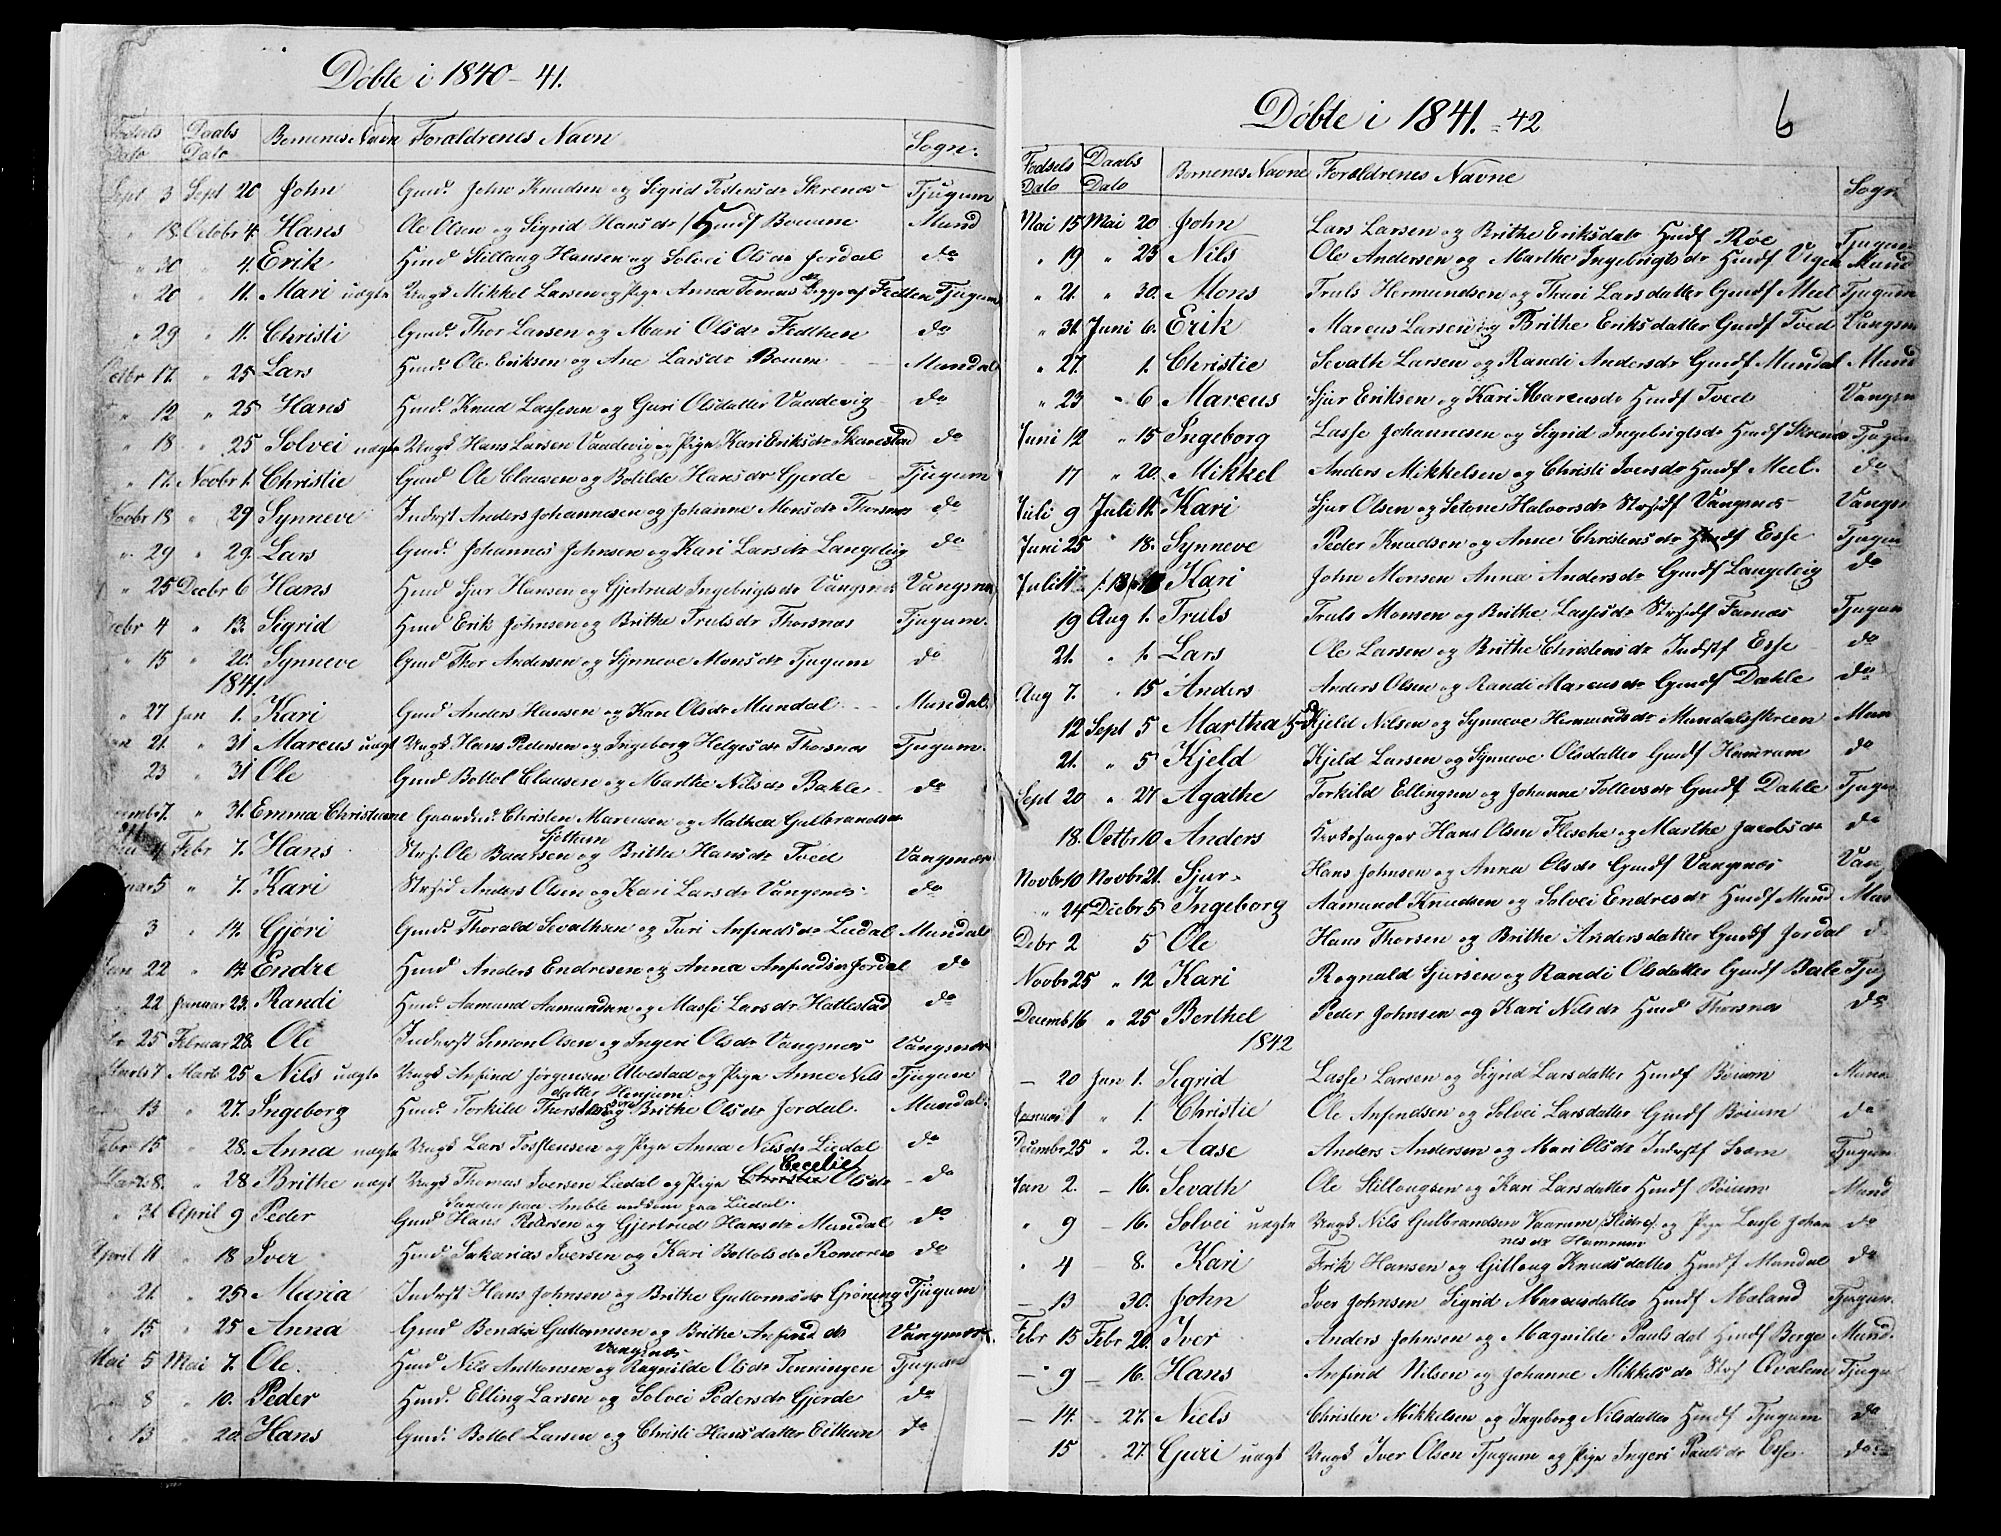 Døbte i 1840-41.
Fødsels Dato Daabs Dato Børnenes Navn Forældrenes Navn Sogn.
Sept 3 Sept 20 John Gmd. John Knudsen og Sigrid Skrenæs Tjugum
" 18 Octobr 4. Hans Ole Olsen og Sigrid Hansdr Hmdf Boium Mund
" 30 " 4. Erik Hmd Stillaug Hansen og Solvei Olsdr Jordal do
" 20 " 11. Mari uægte Ungk Mikkel Larsen og Pige Anna begge af Fedten Tjugum
" 29 " 11. Christi Gmd. Thor Larsen og Mari Olsdr Fedthen do
Octbr 17. " 25 Lars Hmd. Ole Eriksen og Ane Larsdr Boium Mundal
" 12 " 25 Hans Hmd. Knud Lassesen og Guri Olsdatter Vandevig do
" 18 " 25 Solvei uægte Ungk Hans Larsen Vandevig og Pige Kari Eriksdr Skarestad do
" 17. Novbr 1. Christie Gmd Ole Clausen og Botilde Hansdr Gjerde Tjugum
Novbr 18 " 29 Synneve Inderst Anders Johannesen og Johanne Monsdr Thorsnes do
" 29 " 29. Lars Gmd. Johannes Johnsen og Kari Larsdr Langeteig do
" 25 Decbr 6 Hans Hmd Sjur Hansen og Gjertrud Ingebrigtsdr Vangsnes Vangsnæs
Decbr 4 " 13. Sigrid Hmd Erik Johnsen og Brithe Trulsdr Thorsnæs Tjugum.
" 15 " 20. Synneve Gmd Thor Andersen og Synneve Monsdr Tjugum do
1841.
" 27 Jan 1. Kari Gmd Anders Hansen og Kari Olsdr Mundal Mundal
Jan 21. " 31 Marcus uægt Ungk Hans Pedersen og Ingeborg Helgesdr Thorsnæs Tjugum.
23 " 31 Ole Gmd Bottol Clausen og Marthe Nilsdr Bahle do
Decembr 7. " 31. Emma Christiane Christen Marcusen og Mathea Gulbrandsen
Febr 7. Hans Strs. Ole Baarsen Jothun og Brithe Hansdr Tved Vangsnæs
Januar 5 " 7. Kari Strsid Anders Olsen og Kari Larsdr Vangsnæs do
3 " 14. Gjøri Gmd. Thorald Sevathsen og Turi Anfindsdr Liedal Mundal
Jan 22 " 14. Endre Hmd Anders Endresen og Anna Anfindsdr Jordal do
22 Januar 23. Randi Hmd. Aamund Aamundsen og Massi Larsdr Hattestad do
25 Februar 28. Ole Inderst Simon Olsen og Ingeri Olsdr Vangsnæs Vangsnæs
Marts 7 Marts 25 Nils uægte Ungk Anfind Jørgensen Ulvestad og Pige Anne Nils Tjugum
datter Henjum.
13 " 27. Ingeborg Hmd. Torkild og Brithe Olsdr Jordal. Mundal
Febr 15 " 28. Anna uægte Ungk Lars Tostensen og Pige Anna Nilsdr Liedal do
Marts 8. " 28 Brithe uægt Ungk Thomas Iversen Liedal og Pige Christie Cecelie Olsdr do
Sunden paa Amble Liedal.
" 31 April 9 Peder Gmd Hans Pedersen og Gjertrud Hansdr Mundal do
April 11 " 18 Iver Hmd. Sakarias Iversen og Kari Bottolsdr Romøren do
" 21. " 25 Maria Inderst Hans Johnsen og Brithe Guttormsdr Grøning Tjugum
" 15 " 25 Anna Gmd Bendix Guttormsen og Brithe Anfindsdr Vangsnæs Vangsnæs.
Mai 5 Mai 7. Ole. Hmd Nils Anthonsen og Ragnilde Olsdr Tenningen Tjugum
8 " 10. Peder Hmd. Elling Larsen og Solvei Pedersdr Gjerde do
" 13 " 20. Hans Gmd. Bottol Larsen og Christi Hansdatter Eithun do
Døbte i 1841.=42
6
Fødsels Dato Daabs Dato Børnenes Navne Forældrenes Navne Sogn
Mai 15 Mai 20 John Lars Larsen og Brithe Eriksdatr Hmdf Røe Tjugum
" 19 " 23 Nils Ole Andersen og Marthe Ingebrigtsdr Hmdf Vigen Mund
" 21. " 30. Mons Truls Hermundsen og Thuri Larsdatter Gmdf Meel Tjugum
" 31 Juni 6. Erik Marcus Larsen og Brithe Eriksdatter Gmdf Tved Vangsn
" 27. 1. Christie Sevath Larsen og Randi Andersdr Gmdf Mundal Mund
" 23 " 6 Marcus Sjur Eriksen og Kari Marcusdr Hmdf Tved Vangsn
Juni 12 " 15 Ingeborg Lasse Johannesen og Sigrid Ingebrigtsdr Hmdf Skrenæs Tjugum
17 " 20. Mikkel Anders Mikkelsen og Christi Iversdr Hmdf Meel. do
Juli 9 Juli 11. Kari Sjur Olsen og Setone Halvorsdr Strsidf Vangsnæs Vangsn
Juni 25 " 18. Synneve Peder Knudsen og Anne Christensdr Hmdf Esse Tjugum
Juli 11 " 18 Kari John Monsen Anna Andersdr Gmdf Langeteig do
19 Aug 1. Truls Truls Monsen og Brithe Lassesdr Strsidf Farnæs Tjugum
21. " 1. Lars Ole Larsen og Brithe Christensdr Indstf Esse do
Aug 7. " 15 Anders Anders Olsen og Randi Marcusdr Gmdf Dahle do
12 Sept 5 Martha Kjeld Nilsen og Synneve Hermundsdr Mundalsskreen Mun
21. " 5 Kjeld Kjeld Larsen og Synneve Olsdatter Gmdf Hamrum do
Sept 20 " 27 Agathe Torkild Ellingsen og Johanne Tollevsdr Gmdf Dahle Tjugum
18. Octbr 10. Anders Kirkesanger Hans Olsen Flesche og Marthe Jacobsdr do
Novbr 10 Novbr 21. Sjur Hans Johnsen og Anna Olsdr Gmdf Vangsnæs Vang
" 24 Decbr 5 Ingeborg Aamund Knudsen og Solvei Endresdr Hmdf Mund Mun
Debr 2 5 Ole Hans Thorsen og Brithe Andersdatter Gmdf Jordal d
Novbr 25 " 12 Kari Rognald Sjursen og Randi Olsdatter Gmdf Bale Tjug
Decemb 16 " 25 Berthel Peder Johnsen og Kari Nilsdr Hmd Thorsnæs do
1842
— 20 Jan 1. Sigrid Lasse Larsen og Sigrid Larsdatter Hmdf Bøium Mund
Januari 1 " 1. Christie Ole Anfindsen og Solvei Larsdatter Gmdf Bøium do
Decembr 25 " 2. Aase Anders Andersen og Mari Olsdr Inderstf Sværn Tjugum
Jan 2. — 16. Sevath Ole Stillougsen og Kari Larsdatter Hmdf Bøium Mund
" 9 — 16. Solvei uægte Ungk Nils Gulbrandsen Vaarum (Slidre) og Pige Lasse Johan do
nesdr Hamrum
" 4 — 8. Kari Erik Hansen og Gitloug Knudsdatter Hmdf Mundal do
— 13 30. John Iver Johnsen Sigrid Marcusdatter Hmdf Mæland Tjugum
Febr 15 Febr 20. Iver Anders Johnsen og Magnilde Paulsdat Hmdf Berge Mund.
— 9 — 16. Hans Anfind Nilsen og Johanne Mikkelsdr Strsf Qvalem Tjugu
— 14. — 27. Niels Christen Mikkelsen og Ingeborg Nilsdatter Hmdf Tjugum do
15 " 27. Guri uægt Ungk Iver Olsen Tjugum og Pige Ingeri Paulsdr Esse do